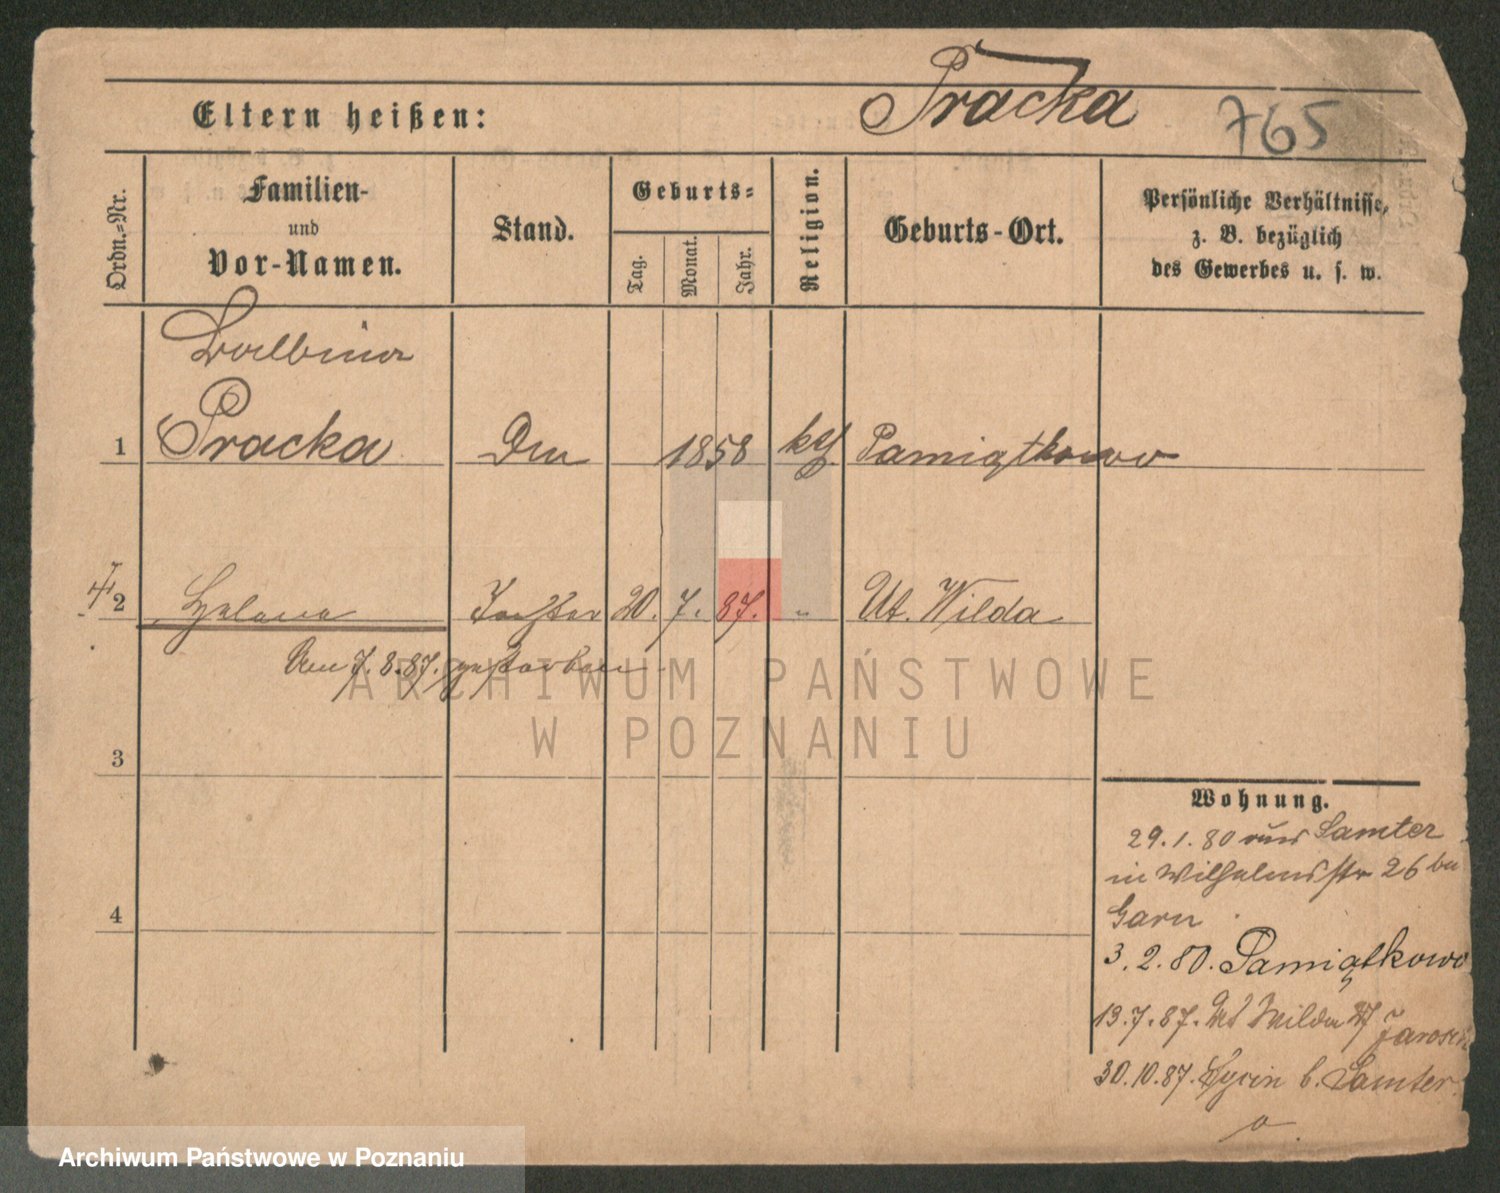 Pracka
765
Eltern heißen:
Ordn.=Nr.
Familien-
und
Vor-Namen.
Stand.
Geburts=
Tag.
Monat.
Jahr.
Religion.
Geburts-Ort.
Persönliche Verhältnisse,
z. B. bezüglich
des Gewerbes u. s. w.
Balbina
1 Pracka 1858 kth Pamiątkowo
2 Helena Tochter 20. 7. 87. " Ut. Wilda
Am 7.8.87. gestorben
ARCHIWUM PAŃSTWOWE
W POZNANIU
3
4
Wohnung.
29.1.80 aus Samter
in Wilhelmsstr 26 bei
Garn
3.2.80. Pamiątkowo
13.7.87. Ut Wilda 27 Jarosch
30.10.87. b. Samter
Archiwum Państwowe w Poznaniu